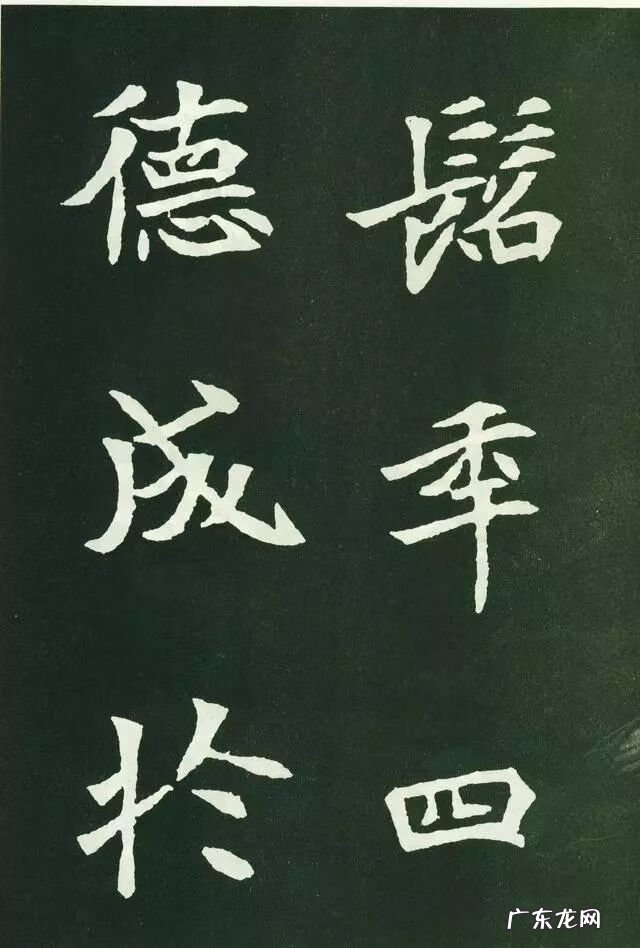 髫年四
德成於
广东龙网